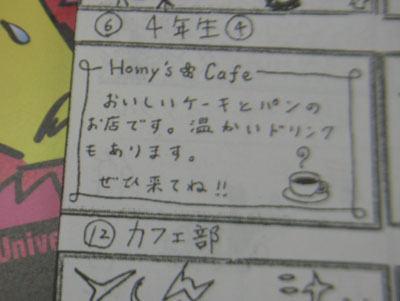 ⑥ 4年生④
Homy's Cafe
おいしいケーキとパンの
お店です。温かいドリンク
もあります。
ぜひ来てね!!
⑫ カフェ部
Unive